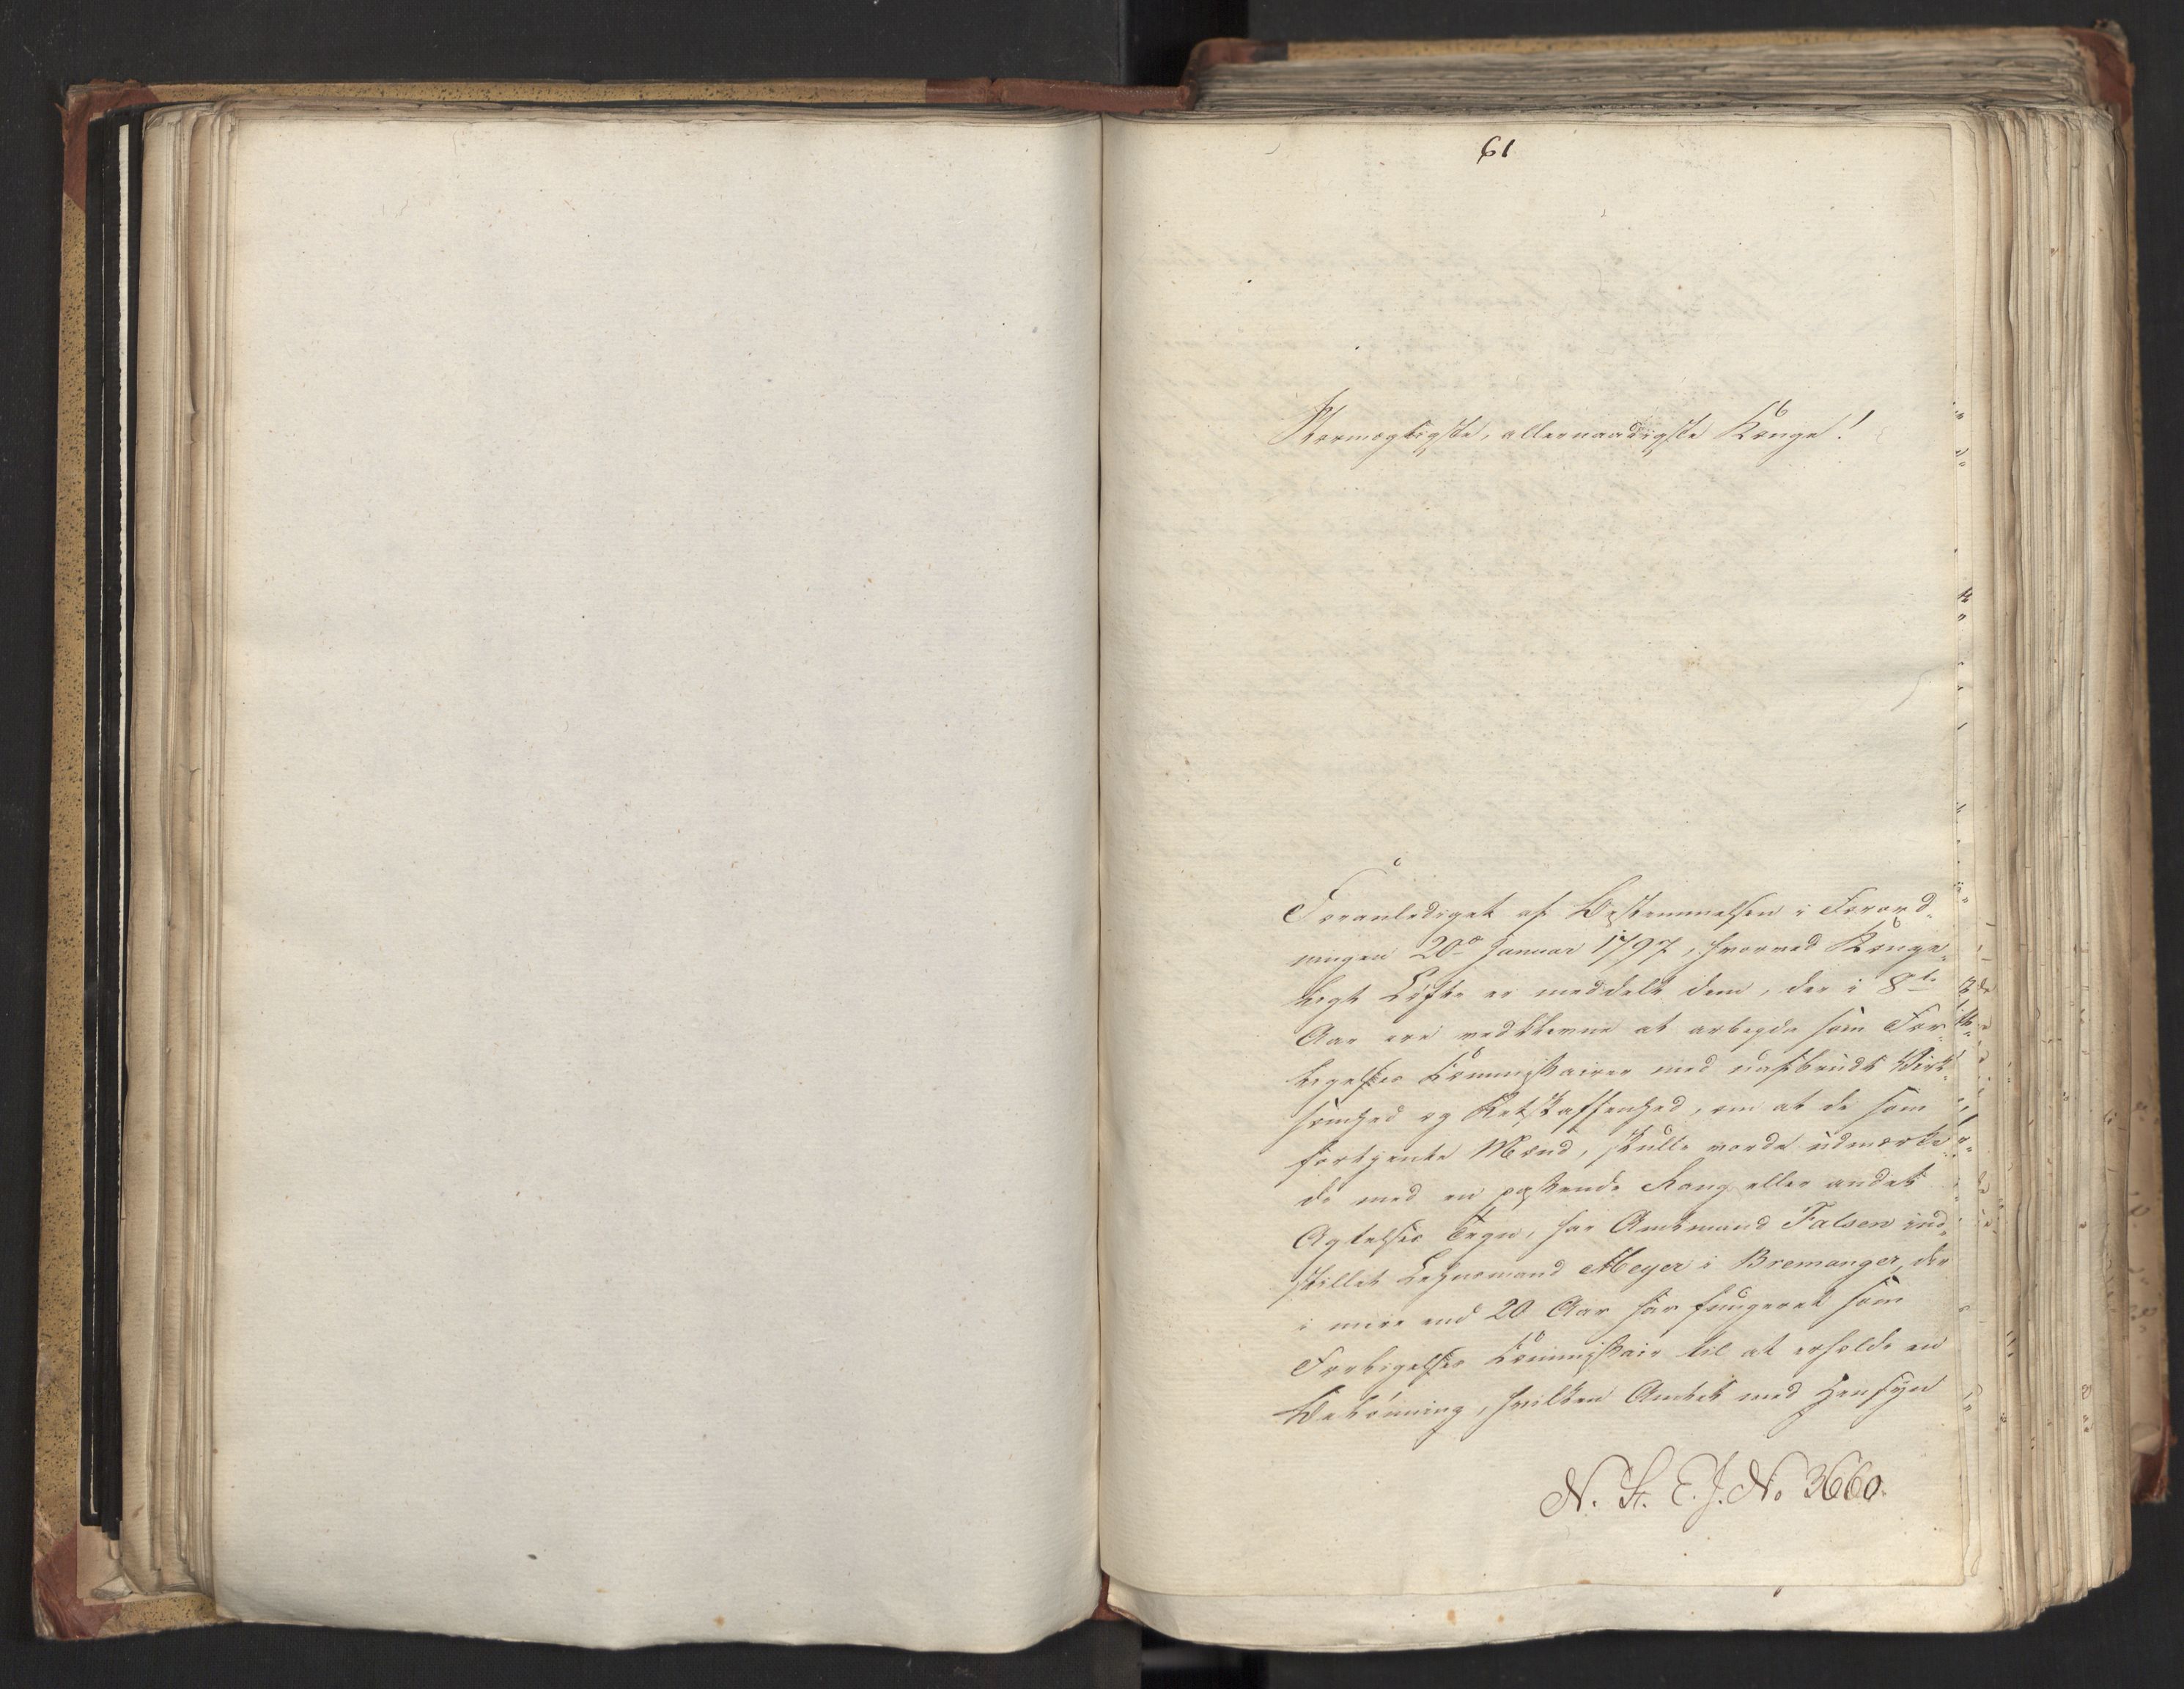 61
Stormægtigste, allernaadigste Konge!
Foranlediget af Bestemmelsen i Forord-
ningen 20de Januar 1797, hvorved Konge-
ligt Løfte er meddelt dem, der i 8te
Aar ere vedblevne at arbeyde som For-
ligelses Commissairer med uafbrudt Virk-
somhed og Retskaffenhed, om at de som
fortjente Mænd, skulle vorde udmærke-
de med en passende Rang eller andet
Agtelses Tegn, har Amtmand Falsen ind-
stillet Lehnsmand Meyer i Bremanger, der
i mere end 20 Aar har fungeret som
Forligelses Commissair til at erholde en
Belønning, hvilken Amtet med Hensyn
N. St. E. J. No 3660.